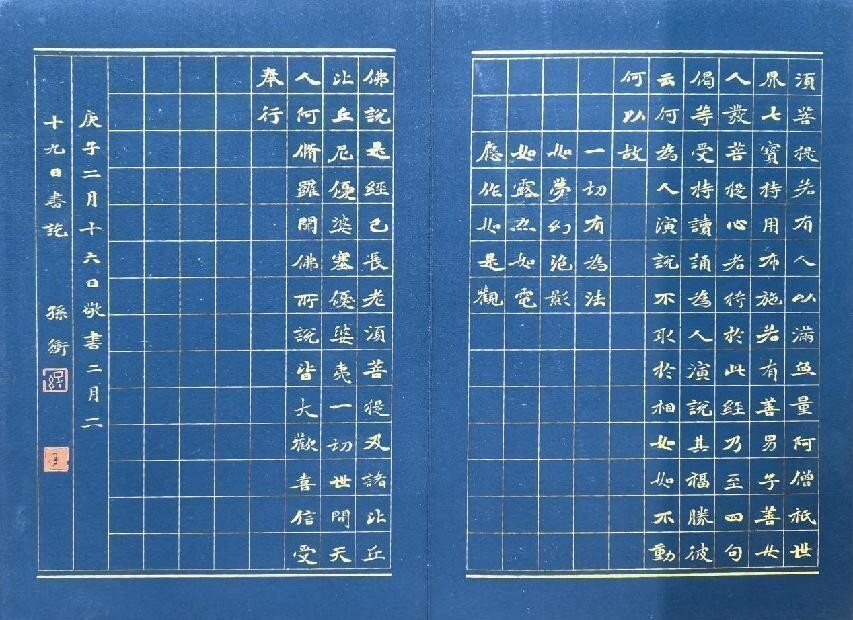 須菩提若有人以滿無量阿僧祇世
界七寶持用布施若有善男子善女
人發菩提心者持於此經乃至四句
偈等受持讀誦為人演說其福勝彼
云何為人演說不取於相如如不動
何以故
一切有為法
如夢幻泡影
如露亦如電
應作如是觀
佛說是經已長老須菩提及諸比丘
比丘尼優婆塞優婆夷一切世間天
人阿脩羅聞佛所說皆大歡喜信受
奉行
庚子二月十六日敬書二月二
十九日書訖 孫